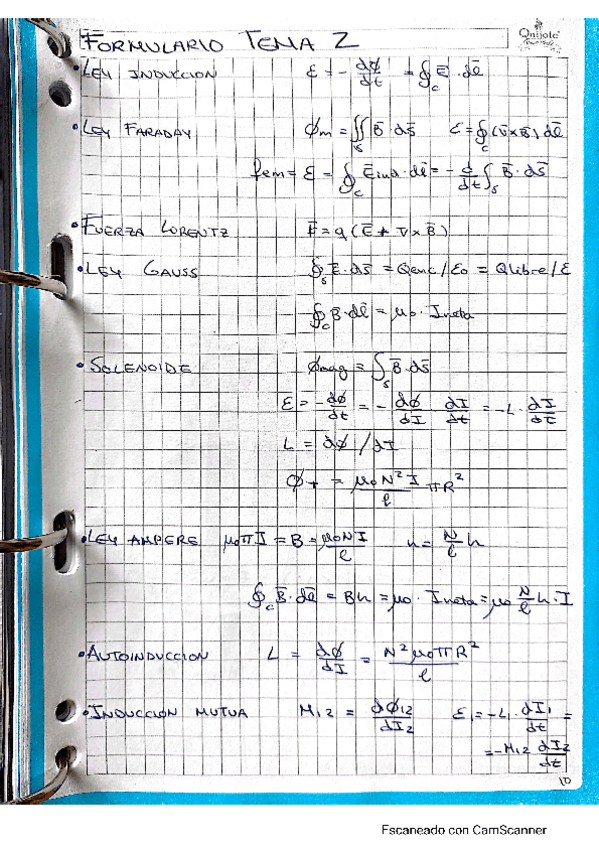 FORMULARIO TEMA 2
Qnijote
• LEY INDUCCION ε = - dϕ/dt = ∮c Ē · dl̄
• LEY FARADAY ϕm = ∬s B̄ · ds̄ ε = ∮c (v̄ × B̄) dl̄
fem = ε = ∮c Ēind · dl̄ = - d/dt ∫s B̄ · ds̄
• FUERZA LORENTZ F̄ = q (Ē + v̄ × B̄)
• LEY GAUSS ∮s Ē · ds̄ = Qenc/εo = Qlibre/ε
∮c B · dl̄ = μo · Ineta
• SOLENOIDE ϕmag = ∫s B̄ · ds̄
ε = - dϕ/dt = - dϕ/dI dI/dt = -L · dI/dt
L = dϕ/dI
ϕT = μo N² I / l πR²
• LEY AMPERE μoπI = B = μoNI/l n = N/l h
∮c B̄ · dl̄ = Bh = μo · Ineta = μo N/l h · I
• AUTOINDUCCION L = dϕ/dI = N² μo πR² / l
• INDUCCION MUTUA M12 = dϕ12/dI2 ε1 = -L1 · dI1/dt =
= -M12 dI2/dt
10
Escaneado con CamScanner